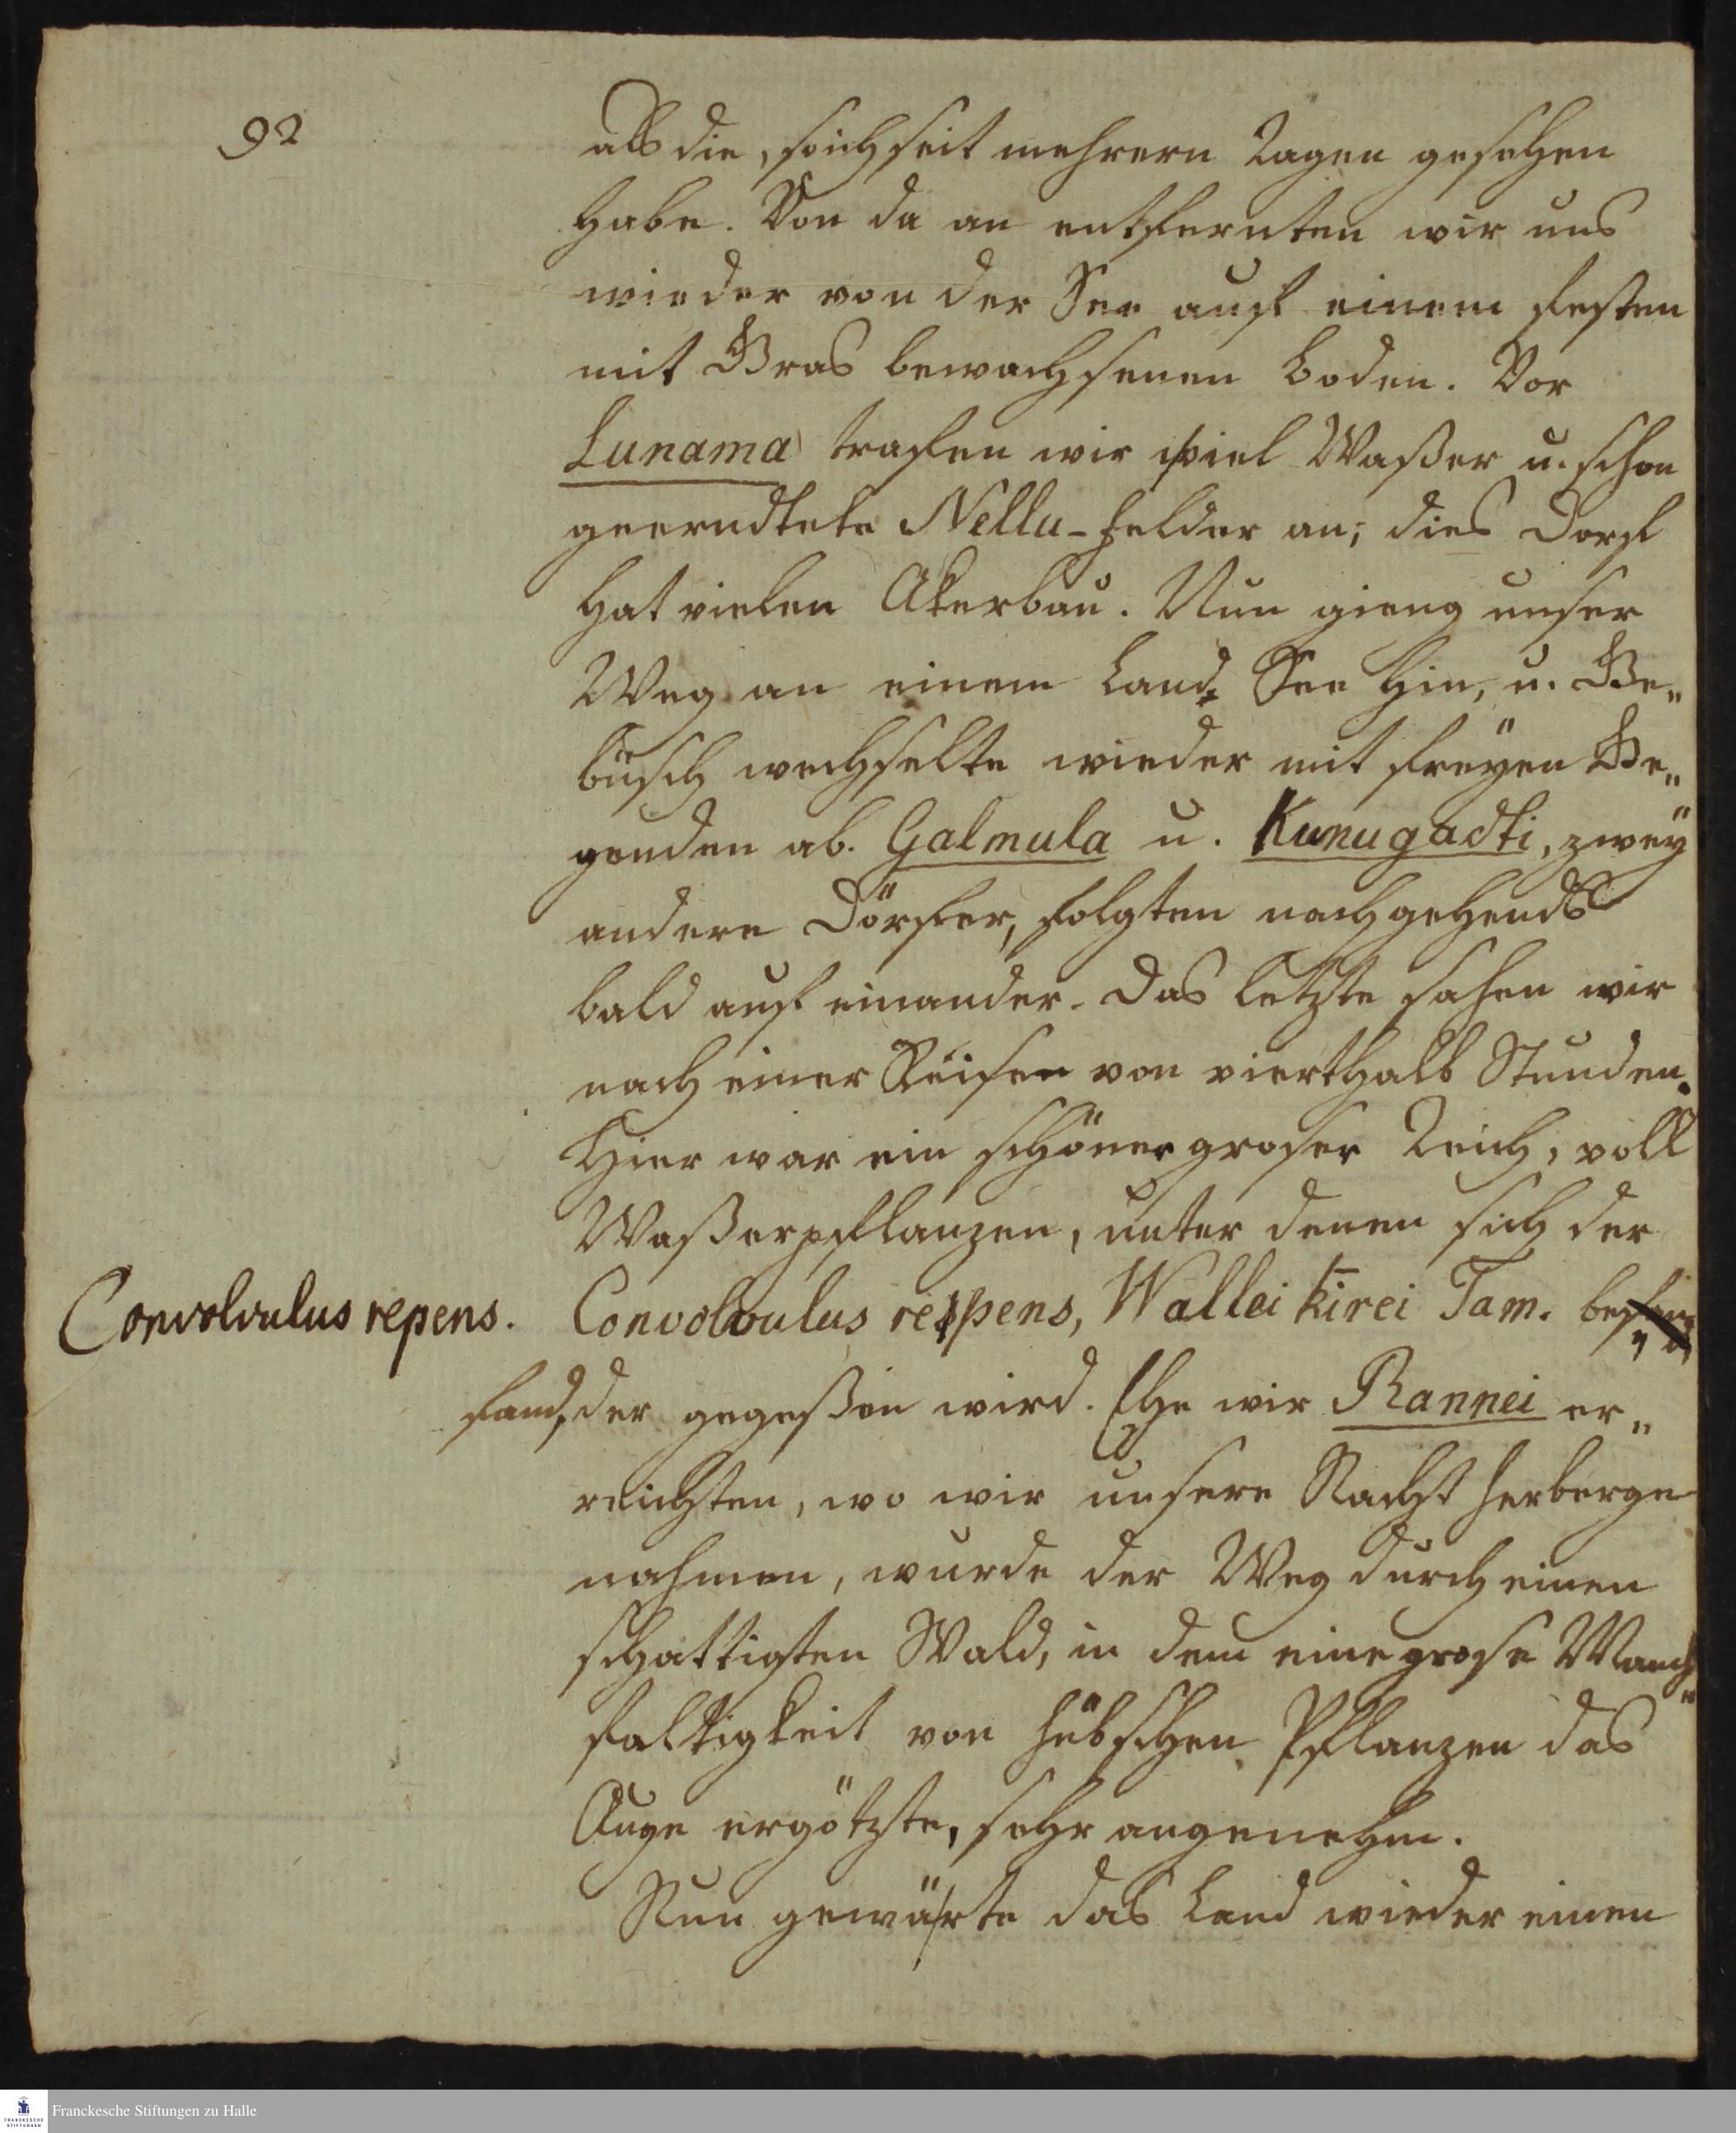 92
als die, so ich seit mehrern Tagen gesehen
habe. Von da an entfernten wir uns
wieder von der See auf einem festen
mit Gras bewachsenen Boden. Vor
Lunama trafen wir viel Waßer u. schon
geerndtete Nellu-Felder an; dies Dorf
hat vielen Akerbau. Nun gieng unser
Weg an einem Land See hin, u. Ge„
büsch wechselte wieder mit freyen Ge„
genden ab. Galmula u. Kunugadti, zwey
andere Dörfer, folgten nachgehends
bald auf einander. Das letzte sahen wir
nach einer Reise von vierthalb Stunden.
Hier war ein schöner groser Teich, voll
Waßerpflanzen, unter denen sich der
Convolvulus repens.
Convolvulus repens, Wallei kirei Tam. be„
fand, der gegeßen wird. Ehe wir Rannei er„
reichten, wo wir unsere Nachtherberge
nahmen, wurde der Weg durch einen
schattigten Wald, in dem eine grose Manch„
faltigkeit von hübschen Pflanzen das
Auge ergötzte, sehr angenehm.
Nun gewärte das Land wieder einen
Franckesche Stiftungen zu Halle
FRANCKESCHE
STIFTUNGEN